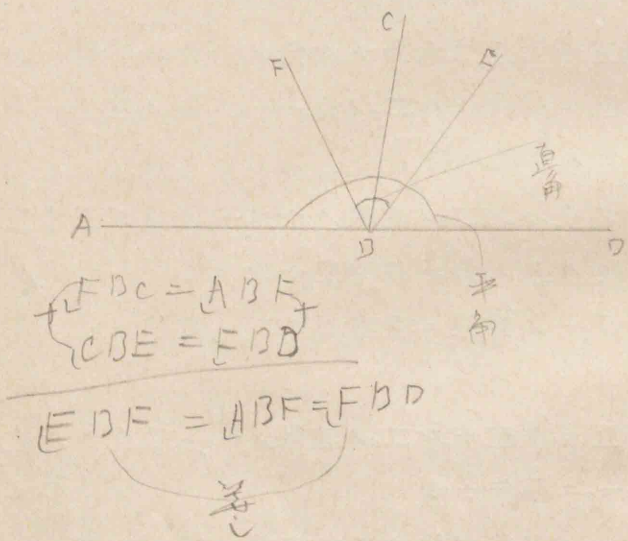 C
F
E
直角
A
B
D
平角
∠FBC = ∠ABF
+ +
∠CBE = ∠EBD
∠EBF = ∠ABF = ∠FBD